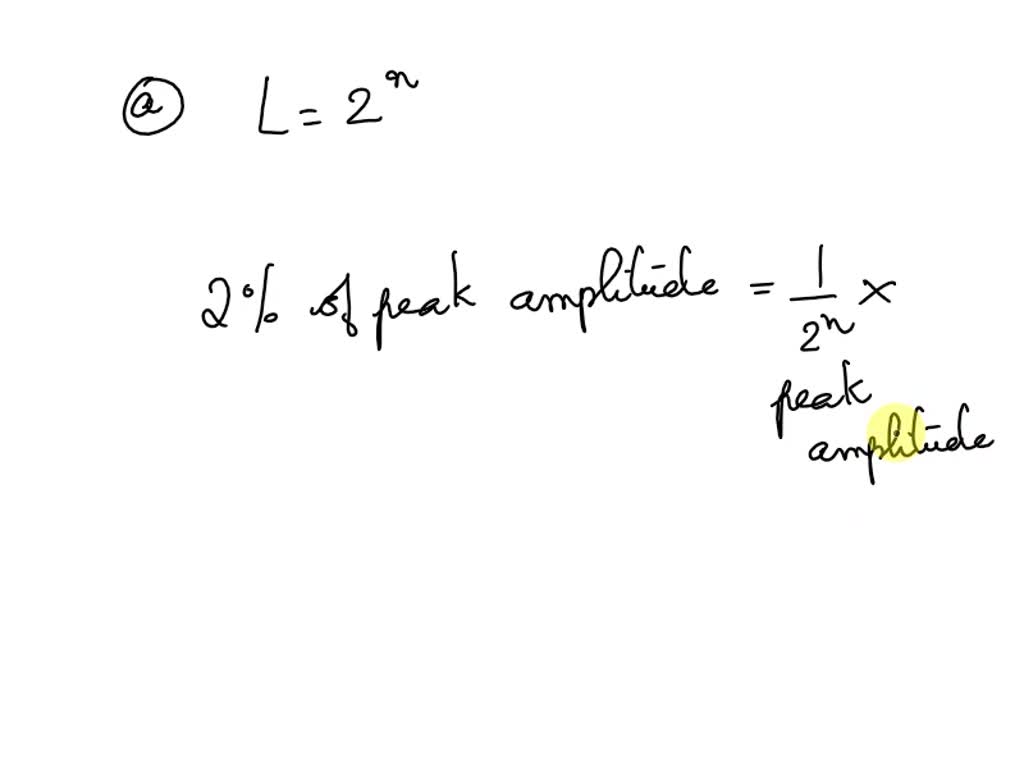 ⓐ L = 2ⁿ
2% of peak amplitude = 1/2ⁿ ×
peak
amplitude